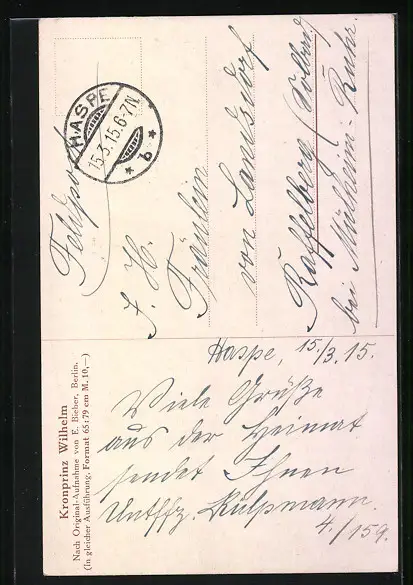 Feldpost
HASPE
15.3.15.6-7N.
* b *
I. H.
Fräulein
von Landsdorf
Raffelberg (Solbad)
bei Mülheim-Ruhr.
Kronprinz Wilhelm
Nach Original-Aufnahme von E. Bieber, Berlin.
(In gleicher Ausführung. Format 65:79 cm M. 10,—)
Haspe, 15./3. 15.
Viele Grüße
aus der Heimat
sendet Ihnen
Untffz. Külpmann.
4./159.